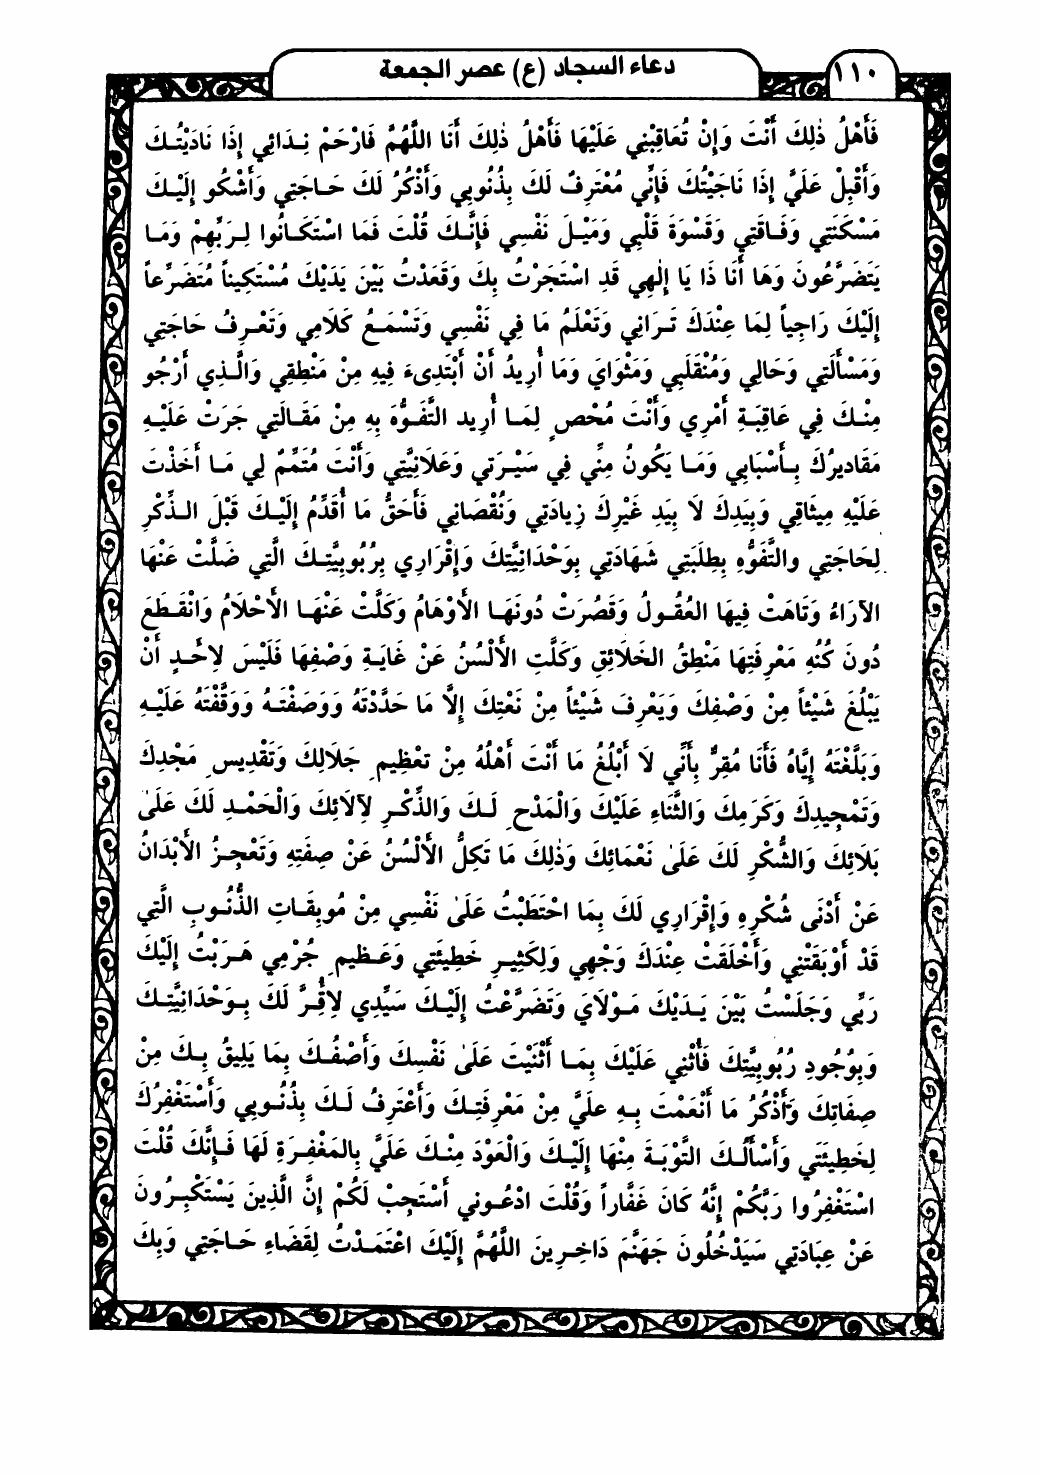 ١١٠
دعاء السجاد (ع) عصر الجمعة
فَأَهْلُ ذٰلِكَ أَنْتَ وَإِنْ تُعَاقِبْنِي عَلَيْهَا فَأَهْلُ ذٰلِكَ أَنَا اللَّهُمَّ فَارْحَمْ نِـدَائِي إِذَا نَادَيْتُـكَ
وَأَقْبِلْ عَلَيَّ إِذَا نَاجَيْتُكَ فَإِنِّي مُعْتَرِفٌ لَكَ بِذُنُوبِي وَأَذْكُرُ لَكَ حَـاجَتِي وَأَشْكُو إِلَيْـكَ
مَسْكَنَتِي وَفَـاقَتِي وَقَسْوَةَ قَلْبِي وَمَيْـلَ نَفْسِي فَإِنَّـكَ قُلْتَ فَمَا اسْتَكَـانُوا لِـرَبِّهِمْ وَمَـا
يَتَضَرَّعُونَ وَهَا أَنَا ذَا يَا إِلٰهِي قَدِ اسْتَجَرْتُ بِكَ وَقَعَدْتُ بَيْنَ يَدَيْكَ مُسْتَكِيناً مُتَضَرِّعاً
إِلَيْكَ رَاجِياً لِمَا عِنْدَكَ تَـرَانِي وَتَعْلَمُ مَا فِي نَفْسِي وَتَسْمَـعُ كَلَامِي وَتَعْـرِفُ حَاجَتِي
وَمَسْأَلَتِي وَحَالِي وَمُنْقَلَبِي وَمَثْوَايَ وَمَا أُرِيدُ أَنْ أَبْتَدِىءَ فِيهِ مِنْ مَنْطِقِي وَالَّـذِي أَرْجُو
مِنْـكَ فِي عَاقِبَـةِ أَمْرِي وَأَنْتَ مُحْصٍ لِمَـا أُرِيد التَّفَـوُّهَ بِهِ مِنْ مَقَـالَتِي جَرَتْ عَلَيْـهِ
مَقَادِيرُكَ بِـأَسْبَابِي وَمَـا يَكُونُ مِنِّي فِي سَيْـرَتِي وَعَلَانِيَّتِي وَأَنْتَ مُتَمِّمٌ لِي مَـا أَخَذْتَ
عَلَيْهِ مِيثَاقِي وَبِيَدِكَ لَا بِيَدِ غَيْرِكَ زِيادَتِي وَنُقْصَانِي فَأَحَقُّ مَا أُقَدِّمُ إِلَيْـكَ قَبْلَ الـذِّكْرِ
لِحَاجَتِي والتَّفَوُّهِ بِطِلَبَتِي شَهَادَتِي بِوَحْدَانِيَّتِكَ وَإِقْرَارِي بِرُبُوبِيَّتِـكَ الَّتِي ضَلَّتْ عَنْهَا
الآرَاءُ وَتَاهَتْ فِيهَا العُقُـولُ وَقَصُرَتْ دُونَهَـا الأَوْهَامُ وَكَلَّتْ عَنْهَـا الأَحْلَامُ وَانْقَـطَعَ
دُونَ كُنْهِ مَعْرِفَتِهَا مَنْطِقُ الخَلَائِقِ وَكَلَّتِ الأَلْسُنُ عَنْ غَايَـةِ وَصْفِهَا فَلَيْسَ لِأَحَـدٍ أَنْ
يَبْلُغَ شَيْئاً مِنْ وَصْفِكَ وَيَعْرِفَ شَيْئاً مِنْ نَعْتِكَ إِلَّا مَا حَدَّدْتَهُ وَوَصَفْتَـهُ وَوَقَّفْتَهُ عَلَيْـهِ
وَبَلَّغْتَهُ إِيَّاهُ فَأَنَا مُقِرٌّ بِأَنِّي لَا أَبْلُغُ مَا أَنْتَ أَهْلُهُ مِنْ تَعْظِيمِ جَلَالِكَ وَتَقْدِيسِ مَجْدِكَ
وَتَمْجِيدِكَ وَكَرَمِكَ وَالثَّنَاءِ عَلَيْكَ وَالْمَدْحِ لَـكَ وَالذِّكْـرِ لِآلَائِكَ وَالْحَمْـدِ لَكَ عَلَىٰ
بَلَائِكَ وَالشُّكْرِ لَكَ عَلَىٰ نَعْمَائِكَ وَذٰلِكَ مَا تَكِلُّ الأَلْسُنُ عَنْ صِفَتِهِ وَتَعْجِـزُ الأَبْدَانُ
عَنْ أَدْنَى شُكْرِهِ وَإِقْرَارِي لَكَ بِمَا احْتَطَبْتُ عَلَىٰ نَفْسِي مِنْ مُوبِقَـاتِ الذُّنُـوبِ الَّتِي
قَدْ أَوْبَقَتْنِي وَأَخْلَقَتْ عِنْدَكَ وَجْهِي وَلِكَثِيـرِ خَطِيئَتِي وَعَـظِيمِ جُرْمِي هَـرَبْتُ إِلَيْكَ
رَبِّي وَجَلَسْتُ بَيْنَ يَـدَيْكَ مَـوْلَايَ وَتَضَرَّعْتُ إِلَيْـكَ سَيِّدِي لِأُقِـرَّ لَكَ بِـوَحْدَانِيَّتِـكَ
وَبِوُجُودِ رُبُوبِيَّتِكَ فَأُثْنِي عَلَيْكَ بِمَـا أَثْنَيْتَ عَلَىٰ نَفْسِكَ وَأَصْفُـكَ بِمَا يَلِيقُ بِـكَ مِنْ
صِفَاتِكَ وَأَذْكُرُ مَا أَنْعَمْتَ بِـهِ عَلَيَّ مِنْ مَعْرِفَتِـكَ وَأَعْتَرِفُ لَـكَ بِذُنُـوبِي وَأَسْتَغْفِرُكَ
لِخَطِيئَتِي وَأَسْأَلُـكَ التَّوْبَـةَ مِنْهَا إِلَيْـكَ وَالْعَوْدَ مِنْـكَ عَلَيَّ بِالمَغْفِـرَةِ لَهَا فَـإِنَّكَ قُلْتَ
اسْتَغْفِرُوا رَبَّكُمْ إِنَّهُ كَانَ غَفَّاراً وَقُلْتَ ادْعُـونِي أَسْتَجِبْ لَكُمْ إِنَّ الَّذِينَ يَسْتَكْبِـرُونَ
عَنْ عِبَادَتِي سَيَدْخُلُونَ جَهَنَّمَ دَاخِـرِينَ اللَّهُمَّ إِلَيْكَ اعْتَمَـدْتُ لِقَضَاءِ حَـاجَتِي وَبِكَ